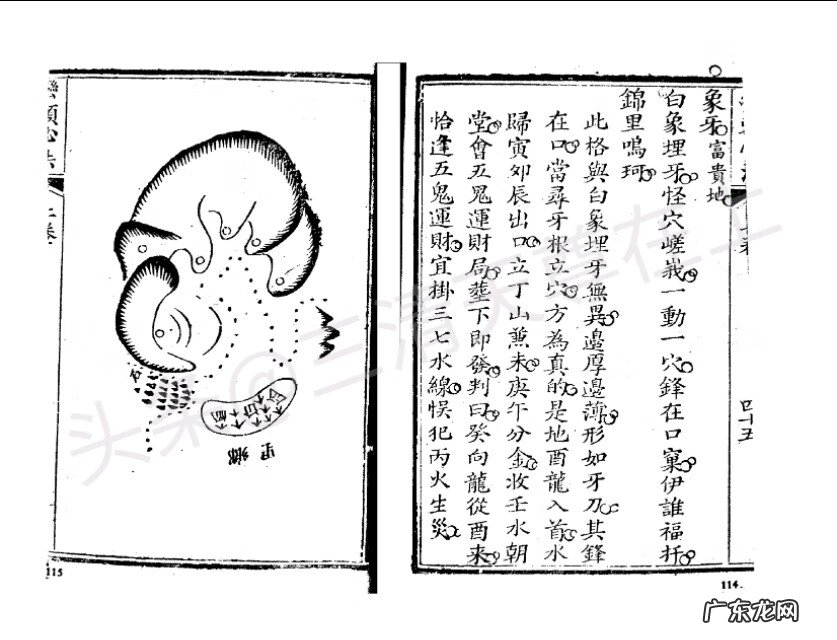 象牙富貴地
白象埋牙怪穴嵯峩一動一穴鋒在口窠伊誰福扦
錦里鳴珂
此格與白象埋牙無異邊厚邊薄形如牙刀其鋒
在口當尋牙根立穴方為真的是地酉龍入首水
歸寅夘辰出口立丁山兼未庚午分金收壬水朝
堂會五鬼運財局塟下即發判曰癸向龍從酉來
恰逢五鬼運財宜掛三七水線悮犯丙火生災
四十五
114
巒頭心法
上卷
石
鄉里
115
头条@三清天尊在上
广东龙网